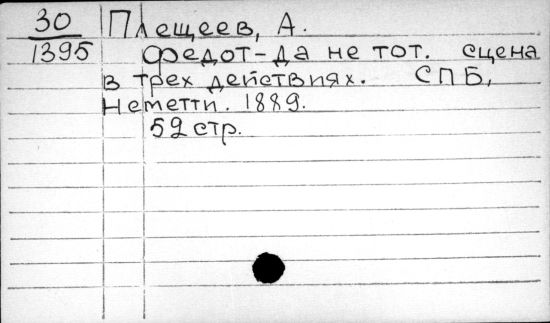 30 Плещеев, А.
1395 Федот-да не тот. сцена
в трех действиях. СПБ,
Неметти. 1889.
52 стр.